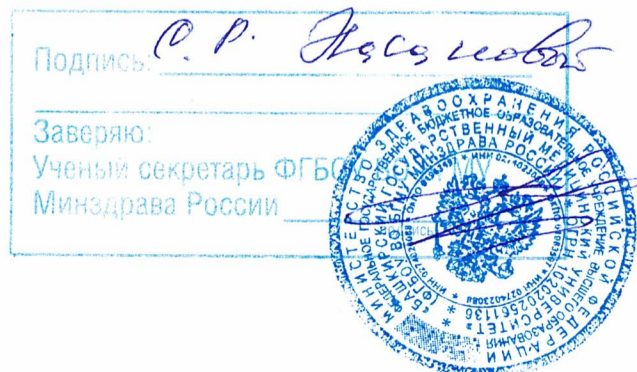 Подпись: С. Р.
Заверяю:
Ученый секретарь ФГБО МУ
Минздрава России
подпись
МИНИСТЕРСТВО ЗДРАВООХРАНЕНИЯ РОССИЙСКОЙ ФЕДЕРАЦИИ
ФЕДЕРАЛЬНОЕ ГОСУДАРСТВЕННОЕ БЮДЖЕТНОЕ ОБРАЗОВАТЕЛЬНОЕ УЧРЕЖДЕНИЕ ВЫСШЕГО ОБРАЗОВАНИЯ
"БАШКИРСКИЙ ГОСУДАРСТВЕННЫЙ МЕДИЦИНСКИЙ УНИВЕРСИТЕТ"
МИНЗДРАВА РОССИИ